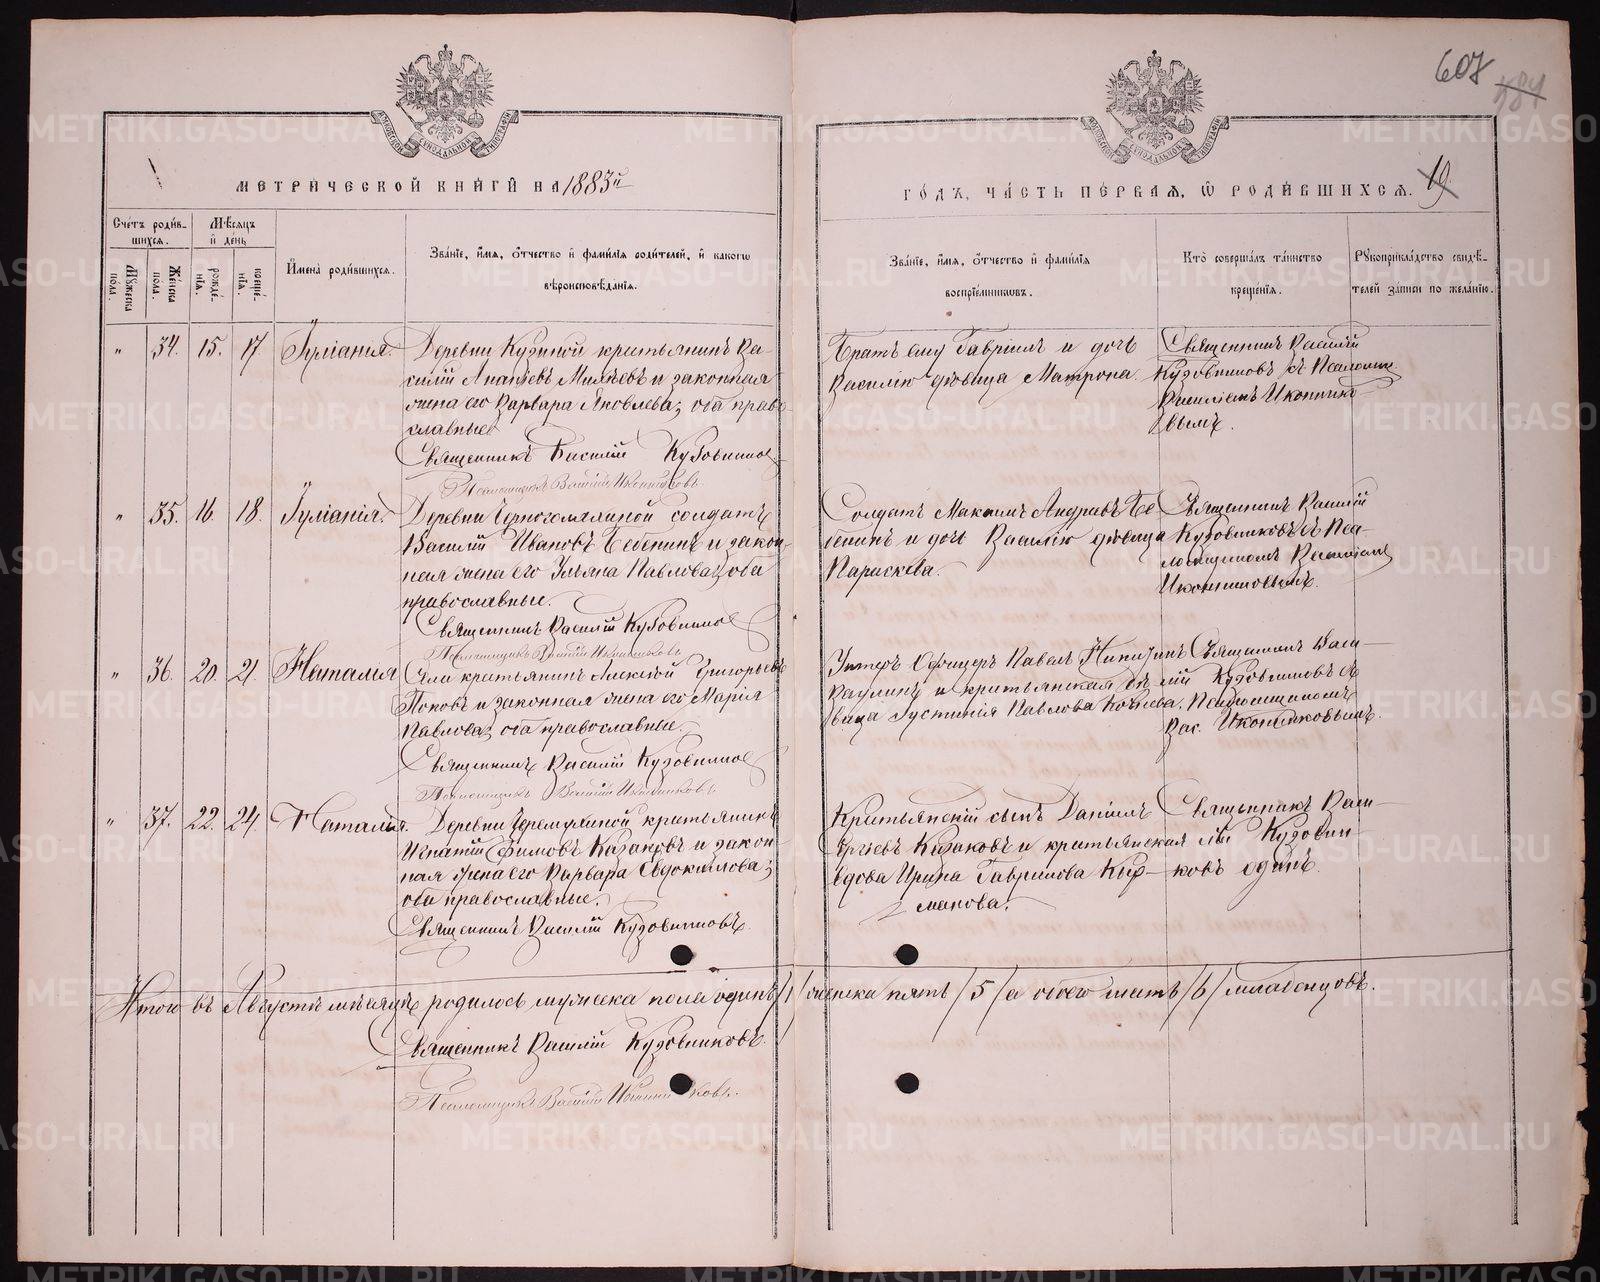 607
584
МЕТРИЧЕСКОЙ КНИГИ НА 1883й
ГОДЪ, ЧАСТЬ ПЕРВАЯ, Ѡ РОДИВШИХСЯ.
19
Счетъ родив-
шихся.
Мѣсяцъ
и день
Мужеска пола.
Женска пола.
рожде-
нія.
креще-
нія.
Имена родившихся.
Званіе, имя, отчество и фамилія родителей, и какого
вѣроисповѣданія.
Званіе, имя, отчество и фамилія
воспріемниковъ.
Кто совершалъ таинство
крещенія.
Рукоприкладство свидѣ-
телей записи по желанію.
" 34. 15. 17 Іуліанія.
Деревни Кузиной крестьянинъ Ва-
силій Ананьевъ и законная
жена его Варвара Яковлева; оба право-
славные
Священникъ Василій Кузовников
Псаломщикъ Василій Иконниковъ.
Братъ ему Гавріилъ и дочь
Василию дѣвица Матрона.
Священникъ Василій
Кузовниковъ съ Псаломщ
Василіемъ Иконнико
вымъ.
" 35. 16. 18. Іуліанія.
Деревни солдатъ
Василій Ивановъ Бебенинъ и закон-
ная жена его Ульяна Павлова; оба
православные.
Священникъ Василій Кузовников
Псаломщикъ Василій Иконниковъ
Солдатъ Максимъ Андреевъ Бе
бенинъ и дочь Василію дѣвица
Параскева.
Священникъ Василій
Кузовниковъ съ Пса-
ломщикомъ Василіемъ
Иконниковымъ.
" 36. 20. 21. Наталія
Села крестьянинъ Алексѣй Григорьевъ
Поповъ и законная жена его Марія
Павлова; оба православные.
Священникъ Василій Кузовников
Псаломщикъ Василій Иконниковъ
Унтеръ Офицеръ Павелъ Никитинъ
Ваулинъ и крестьянская дѣ
вица Іустинія Павлова
Священникъ Васи-
лій Кузовниковъ съ
Псаломщикомъ
Вас. Иконниковымъ.
" 37. 22. 24. Наталія.
Деревни крестьянинъ
Игнатій Ефимовъ Казаковъ и закон-
ная жена его Варвара Евдокимова;
оба православные.
Священникъ Василій Кузовниковъ.
Крестьянскій сынъ Даніилъ
Казаковъ и крестьянская
вдова Ирина Гаврилова
Священникъ Васи-
лій Кузовни-
ковъ одинъ.
Итого въ Августѣ мѣсяцѣ родилось мужеска пола одинъ /1/ женска пять /5/ а обоего шесть /6/ младенцовъ.
Священникъ Василій Кузовниковъ.
Псаломщикъ Василій Иконниковъ.
METRIKI.GASO-URAL.RU